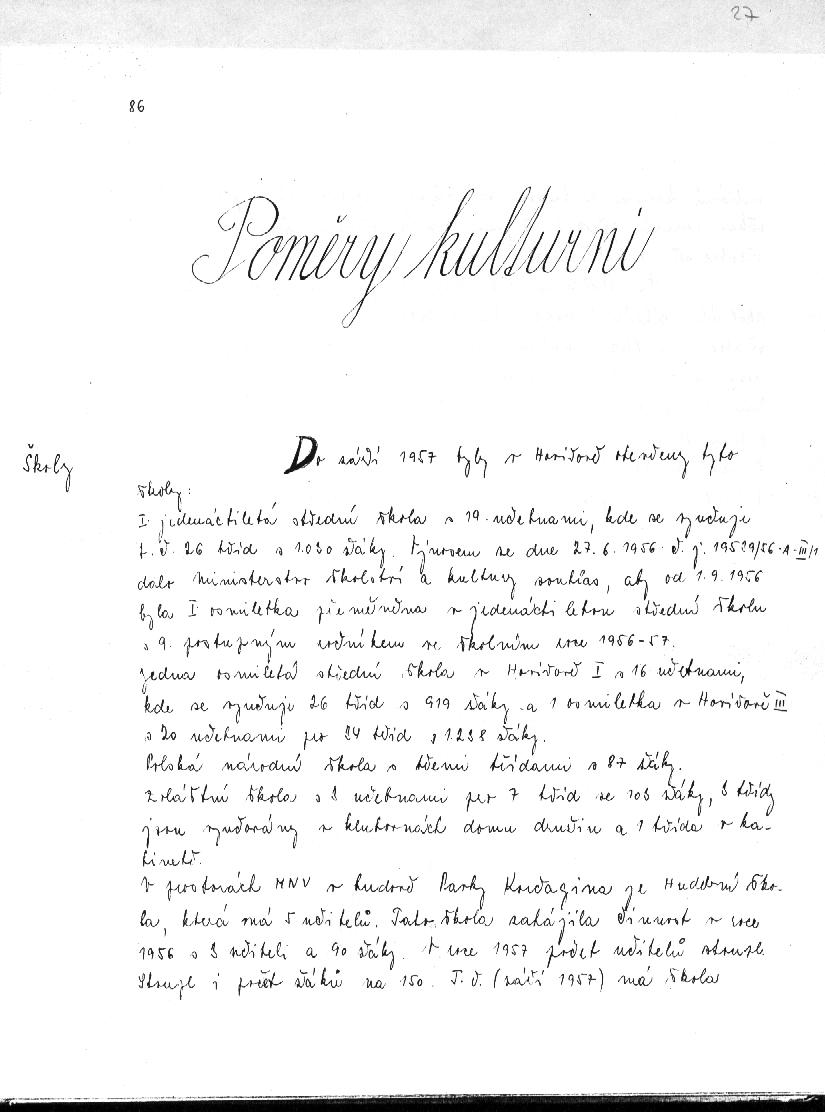 27
86
Poměry kulturní
Školy
Do září 1957 byly v Havířově otevřeny tyto
školy:
I jedenáctiletá střední škola s 19 učebnami, kde se vyučuje
t. č. 26 tříd s 1.030 žáky. Výnosem ze dne 27.6.1956 č. j. 19529/56-A-III/1
dalo Ministerstvo školství a kultury souhlas, aby od 1.9.1956
byla I osmiletka přeměněna v jedenáctiletou střední školu
s 9. postupným ročníkem ve školním roce 1956-57.
Jedna osmiletá střední škola v Havířově I s 16 učebnami,
kde se vyučuje 26 tříd s 919 žáky a 1 osmiletka v Havířově III
s 20 učebnami pro 34 tříd s 1.238 žáky.
Polská národní škola s třemi třídami s 87 žáky.
Zvláštní škola s 3 učebnami pro 7 tříd se 103 žáky, 3 třídy
jsou vyučovány v klubovnách domu družin a 1 třída v ka-
binetě.
V prostorách MNV v budově Parky Korčagina je Hudební ško-
la, která má 5 učitelů. Tato škola zahájila činnost v roce
1956 s 3 učiteli a 90 žáky. V roce 1957 počet učitelů stoupl.
Stoupl i počet žáků na 150. T. č. (září 1957) má škola